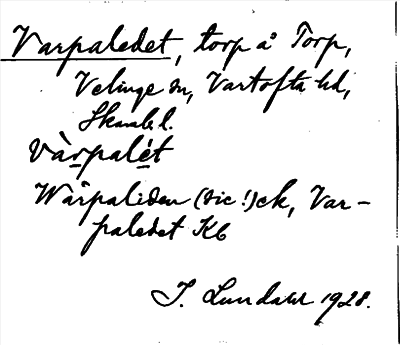 Varpaledet, torp å Torp,
Velinge sn, Vartofta hd,
Skarab.l.
Vàrpalét
Wårpaliden (sic!) ek, Var-
paledet Kb
J. Lundahl 1928.